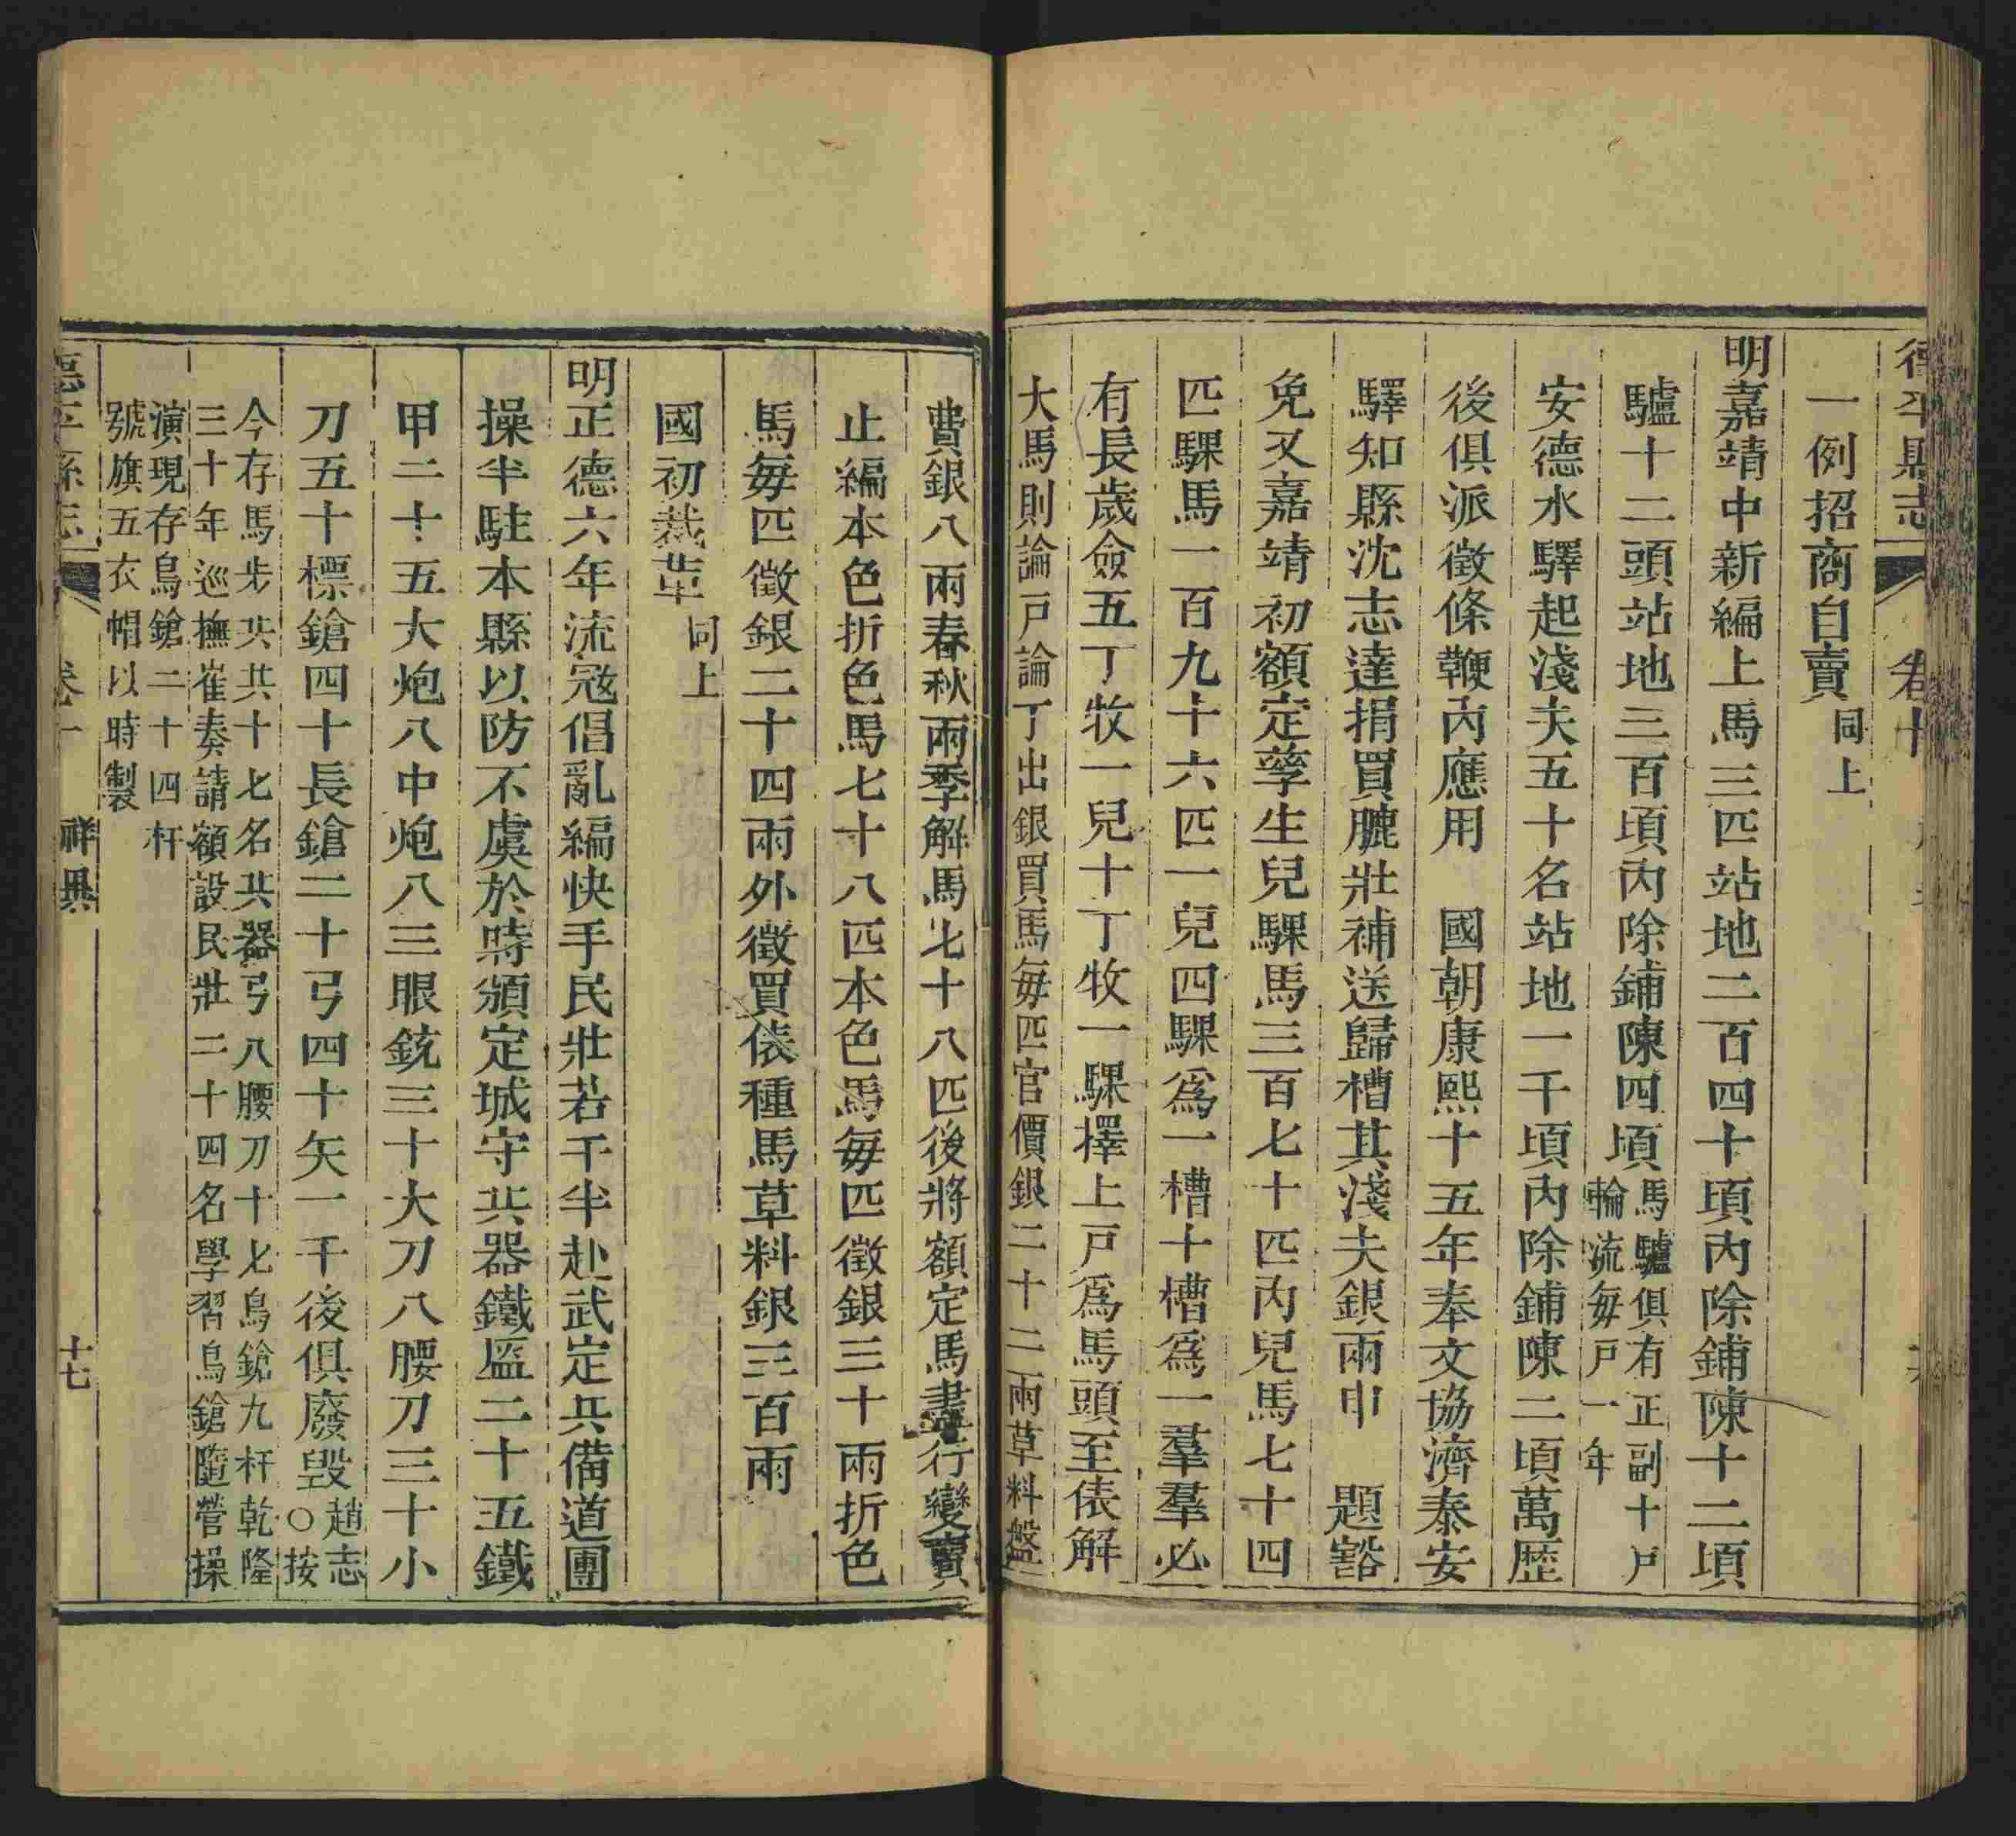 德平縣志
卷十
一例招商自賣同上
明嘉靖中新編上馬三匹站地二百四十頃內除鋪陳十二頃
驢十二頭站地三百頃內除鋪陳四頃馬驢俱有正副十戶
輪流每戶一年
安德水驛起淺夫五十名站地一千頃內除鋪陳二頃萬歷
後俱派徵條鞭內應用 國朝康熙十五年奉文協濟泰安
驛知縣沈志達捐買膘壯補送歸槽其淺夫銀兩申 題豁
免又嘉靖初額定孳生兒騍馬三百七十匹內兒馬七十四
匹騍馬一百九十六匹一兒四騍為一槽十槽為一羣羣必
有長歲僉五丁牧一兒十丁牧一騍擇上戶為馬頭至俵解
大馬則論戶論丁出銀買馬每匹官價銀二十二兩草料盤
費銀八兩春秋兩季解馬七十八匹後將額定馬盡行變賣
止編本色折色馬七十八匹本色馬每匹徵銀三十兩折色
馬每匹徵銀二十四兩外徵買俵種馬草料銀三百兩
國初裁革同上
明正德六年流寇倡亂編快手民壯若干半赴武定兵備道團
操半駐本縣以防不虞於時頒定城守兵器鐵盔二十五鐵
甲二十五大炮八中炮八三眼銃三十大刀八腰刀三十小
刀五十標鎗四十長鎗二十弓四十矢一千後俱廢毀趙志
○按
今存馬步兵共十七名兵器弓八腰刀十七鳥鎗九杆乾隆
三十年巡撫崔奏請額設民壯二十四名學習鳥鎗隨營操
演現存鳥鎗二十四杆
號旗五衣帽以時製
德平縣志
卷十
祥異
十七